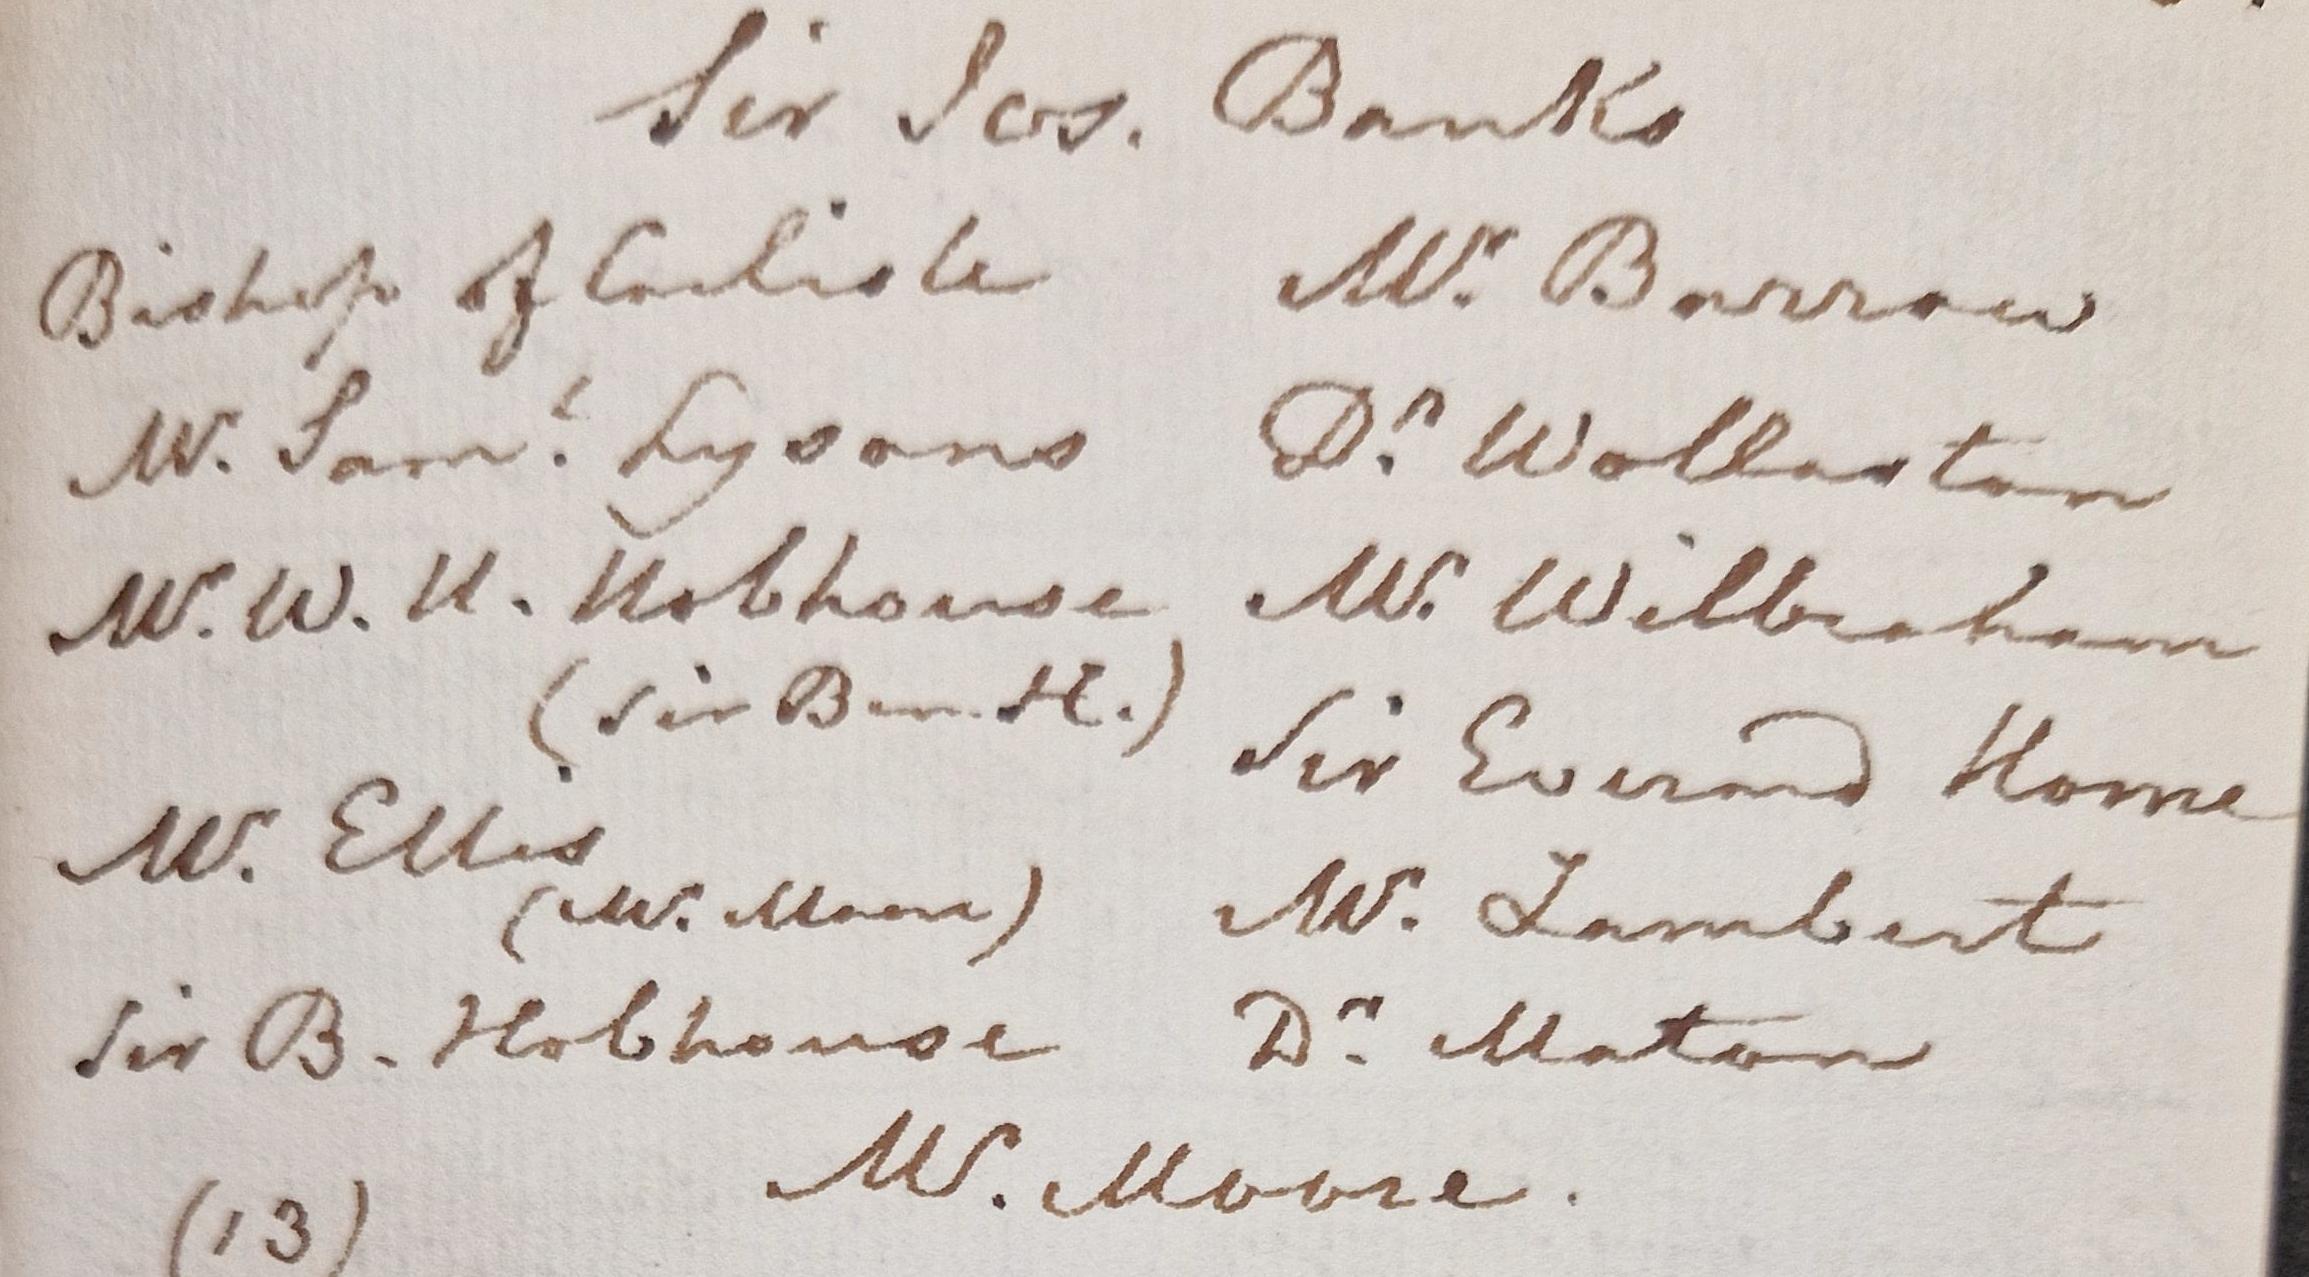 Sir Jos. Banks
Bishop of Carlisle
Mr. Barrow
Mr. Saml. Lysons
Dr. Wollaston
Mr. W. H. Hobhouse
Mr. Wilbraham
(Sir Ben. H.)
Sir Everard Home
Mr. Ellis
(Mr. Moore)
Mr. Lambert
Sir B. Hobhouse
Dr. Maton
Mr. Moore.
(13)